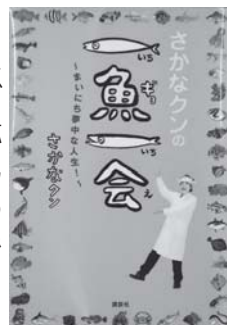 さかなクンの
一魚一会
いち ぎょ いち え
~まいにち夢中な人生!~
さかなクン
講談社